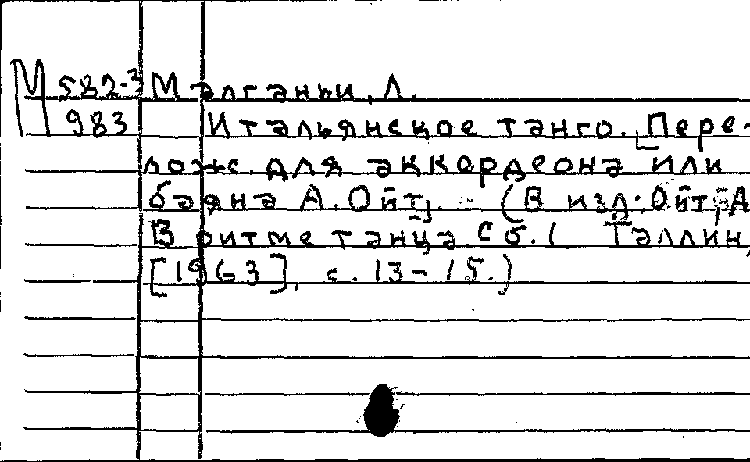 М 582-3 Малганьи, Л.
983 Итальянское танго. [Пере-
лож. для аккордеона или
баяна А. Ойт]. – (В изд: Ойт, А
В ритме танца. Сб. 1 Таллин,
[1963], с. 13-15.)